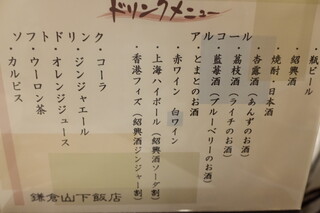 ドリンクメニュー
アルコール
・瓶ビール
・紹興酒
・焼酎・日本酒
・杏露酒（あんずのお酒）
・荔枝酒（ライチのお酒）
・藍苺酒（ブルーベリーのお酒）
・とまとのお酒
・赤ワイン 白ワイン
・上海ハイボール（紹興酒ソーダ割）
・香港フィズ（紹興酒ジンジャー割）
ソフトドリンク
・コーラ
・ジンジャエール
・オレンジジュース
・ウーロン茶
・カルピス
鎌倉山下飯店